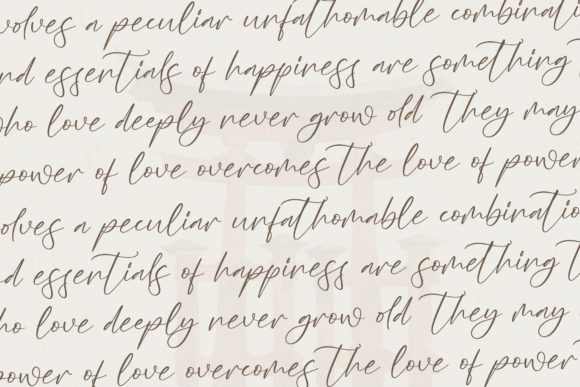 volves a peculiar unfathomable combinati
nd essentials of happiness are something
who love deeply never grow old They may
power of love overcomes the love of power
volves a peculiar unfathomable combinatio
nd essentials of happiness are something t
who love deeply never grow old They may
power of love overcomes the love of power